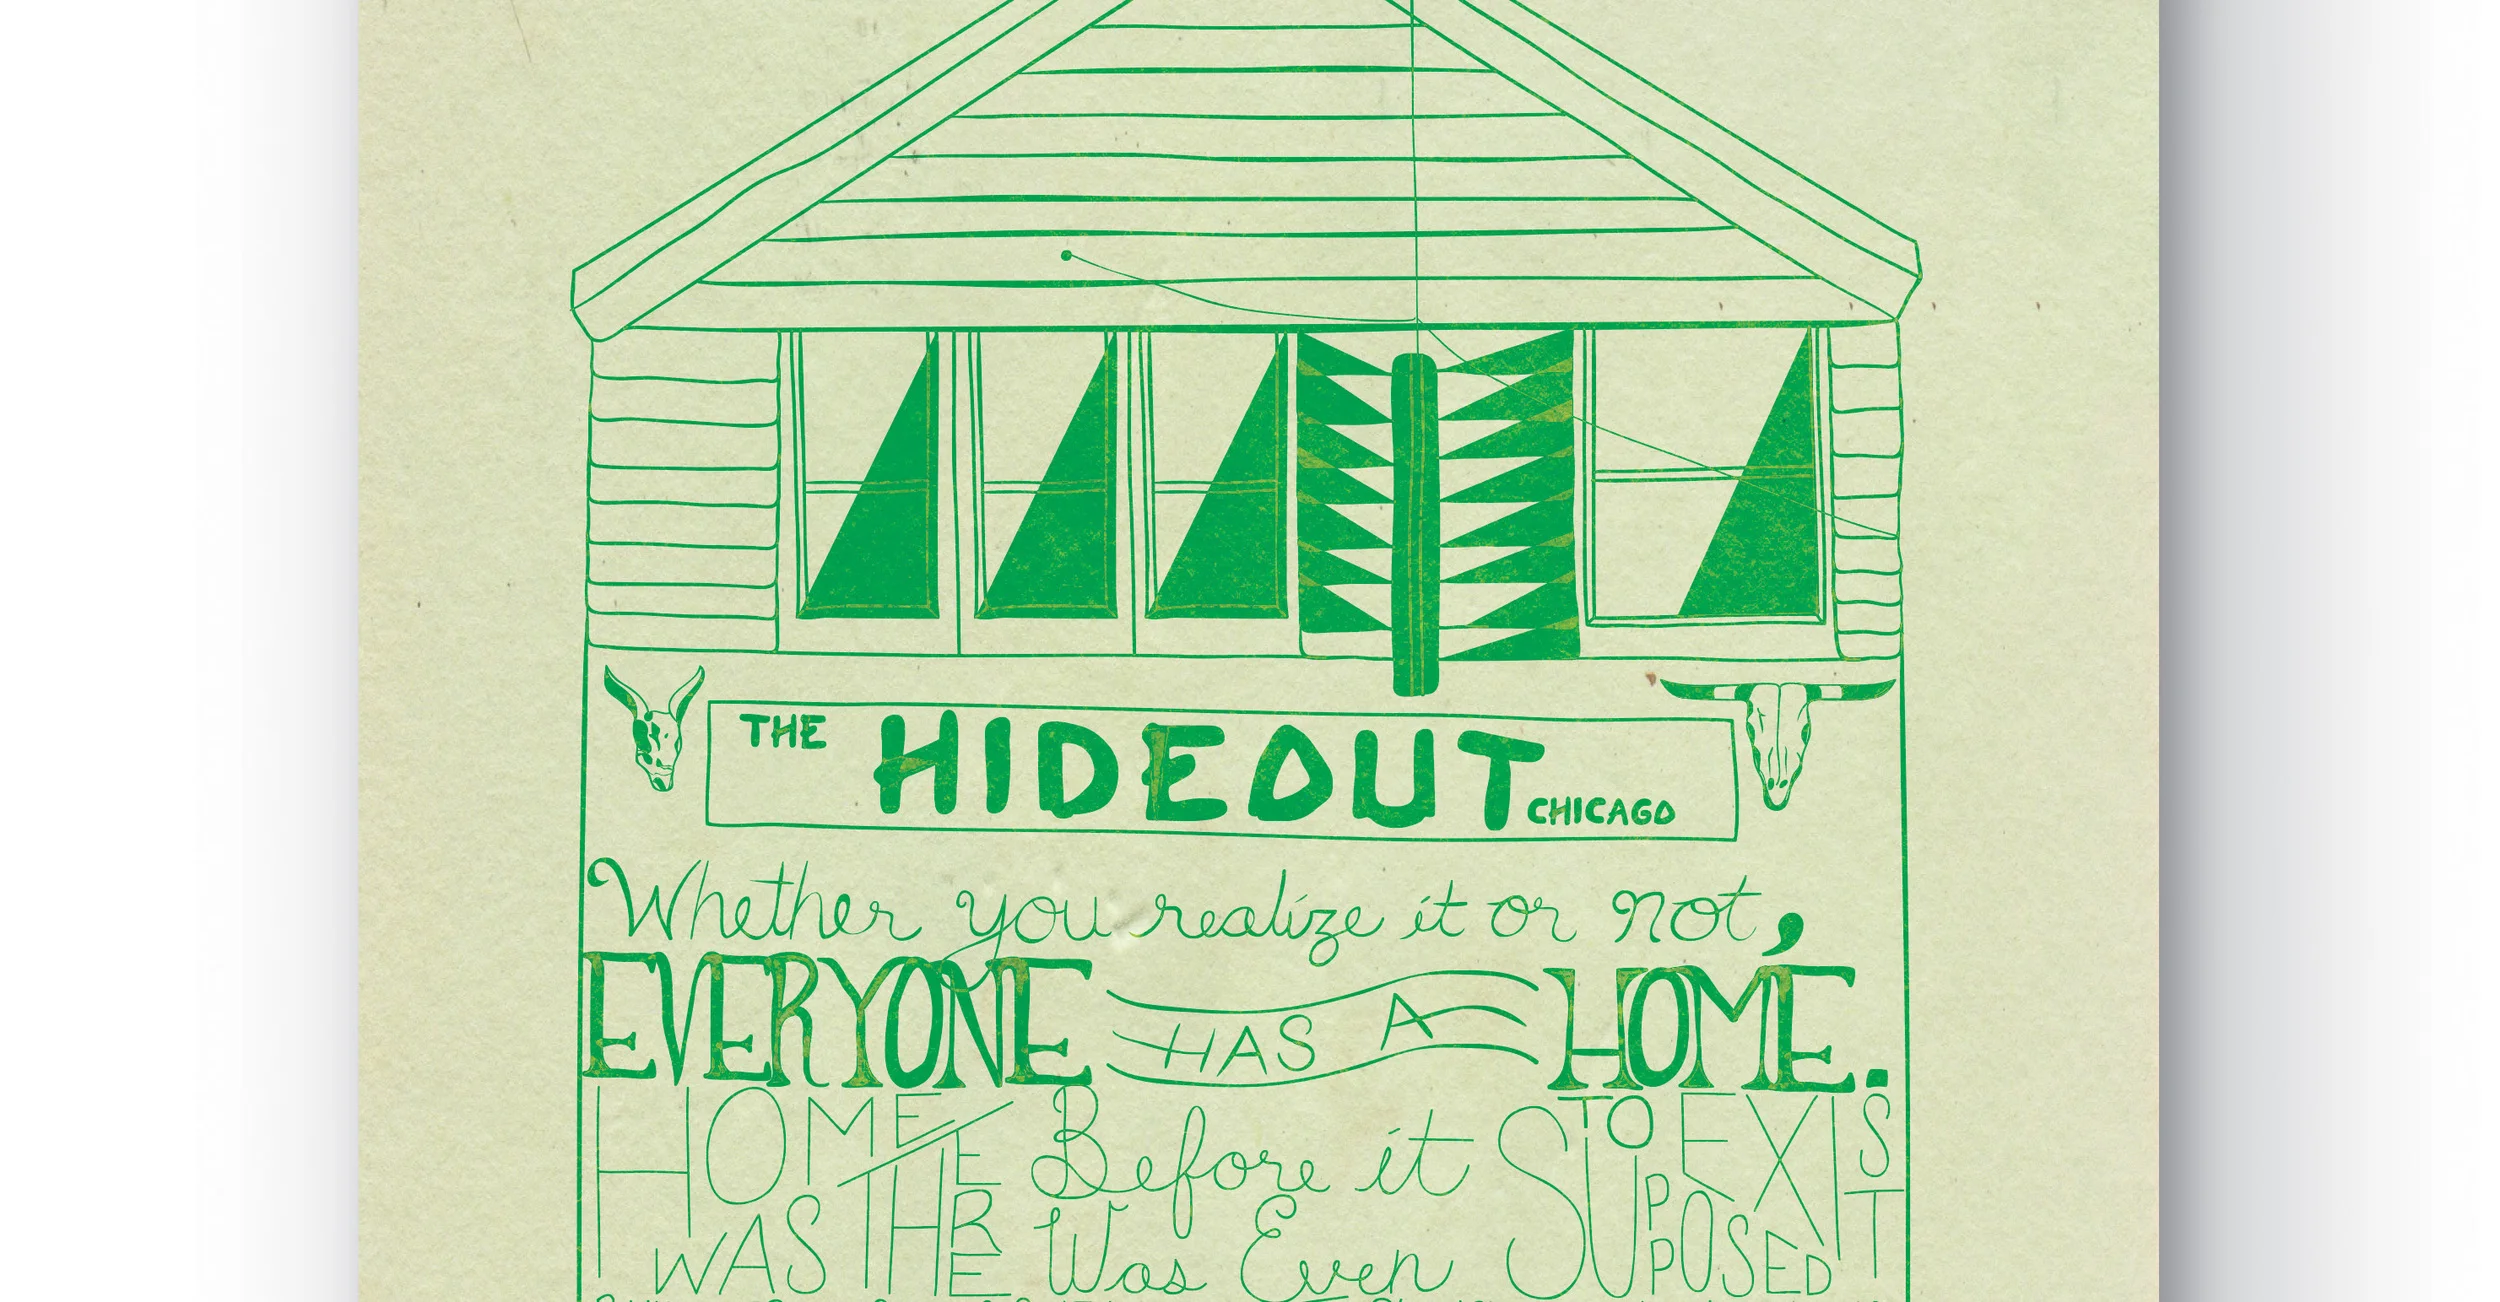 THE HIDEOUT CHICAGO
Whether you realize it or not,
EVERYONE HAS A HOME.
HOME WAS THERE Before it Was Even SUPPOSED TO EXIST